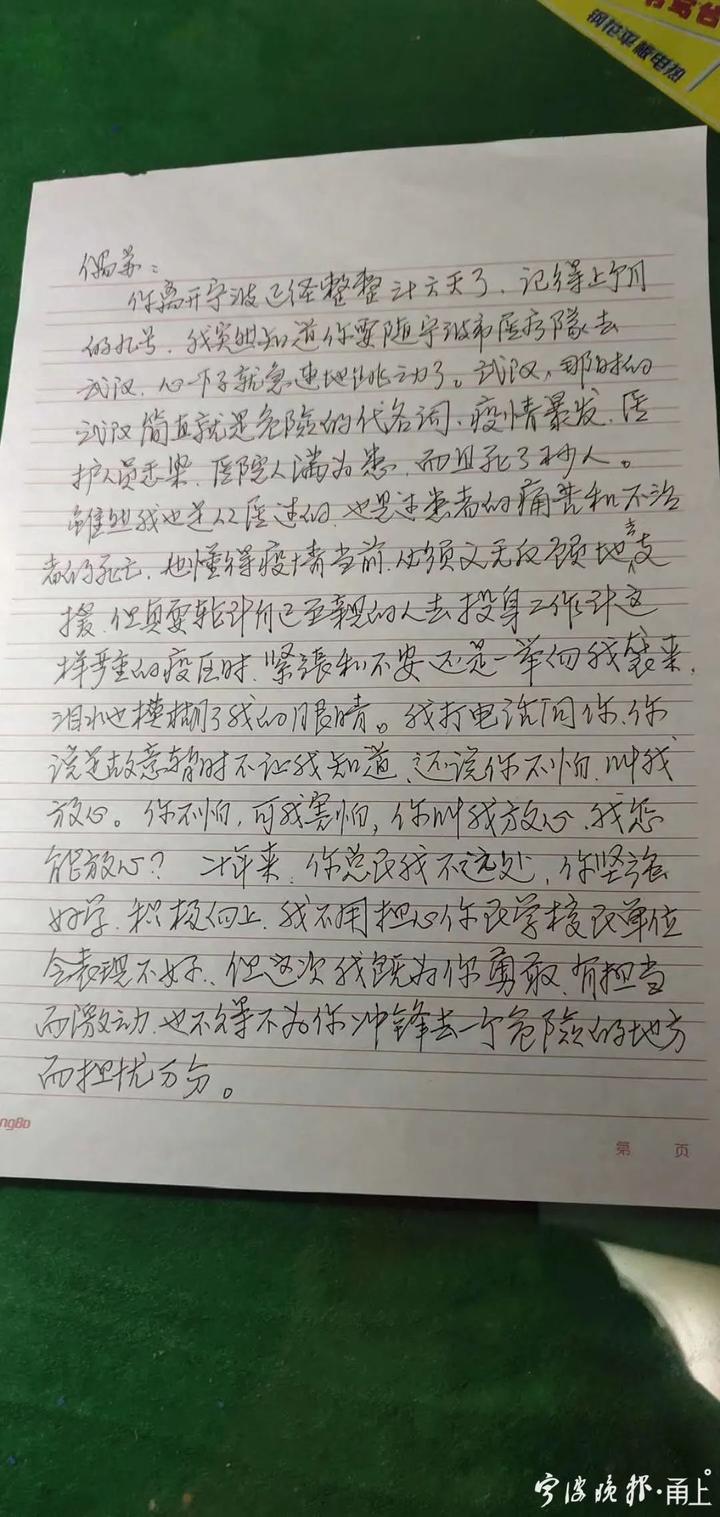 你离开宁波已经整整廿六天了、记得上个月
的九号、我突然知道你要随宁波市医疗队去
武汉、心一下子就急速地跳动了。武汉、那时的
武汉简直就是危险的代名词、疫情暴发、医
护人员感染、医院人满为患、而且死了秒人。
虽然我也是从医过的、也见过患者的痛苦和不治
者的死亡、也懂得疫情当前、必须义无反顾地去支
援、但真要轮到自己至亲的人去投身工作到这
样严重的疫区时、紧張和不安还是一举向我袭来、
泪水也模糊了我的眼睛。我打电话问你、你
说是故意暂时不让我知道、还说你不怕、叫我
放心。你不怕、可我害怕、你叫我放心、我怎
能放心？二十年来、你总民我不远处、你坚强
好学、积极向上、我不用担心你民学校民单位
会表现不好、但这次我既为你勇敢、有担当
而激动、也不得不为你冲锋去一个危险的地方
而担忧万分。
ngBo
第 页
宁波晚报·甬上